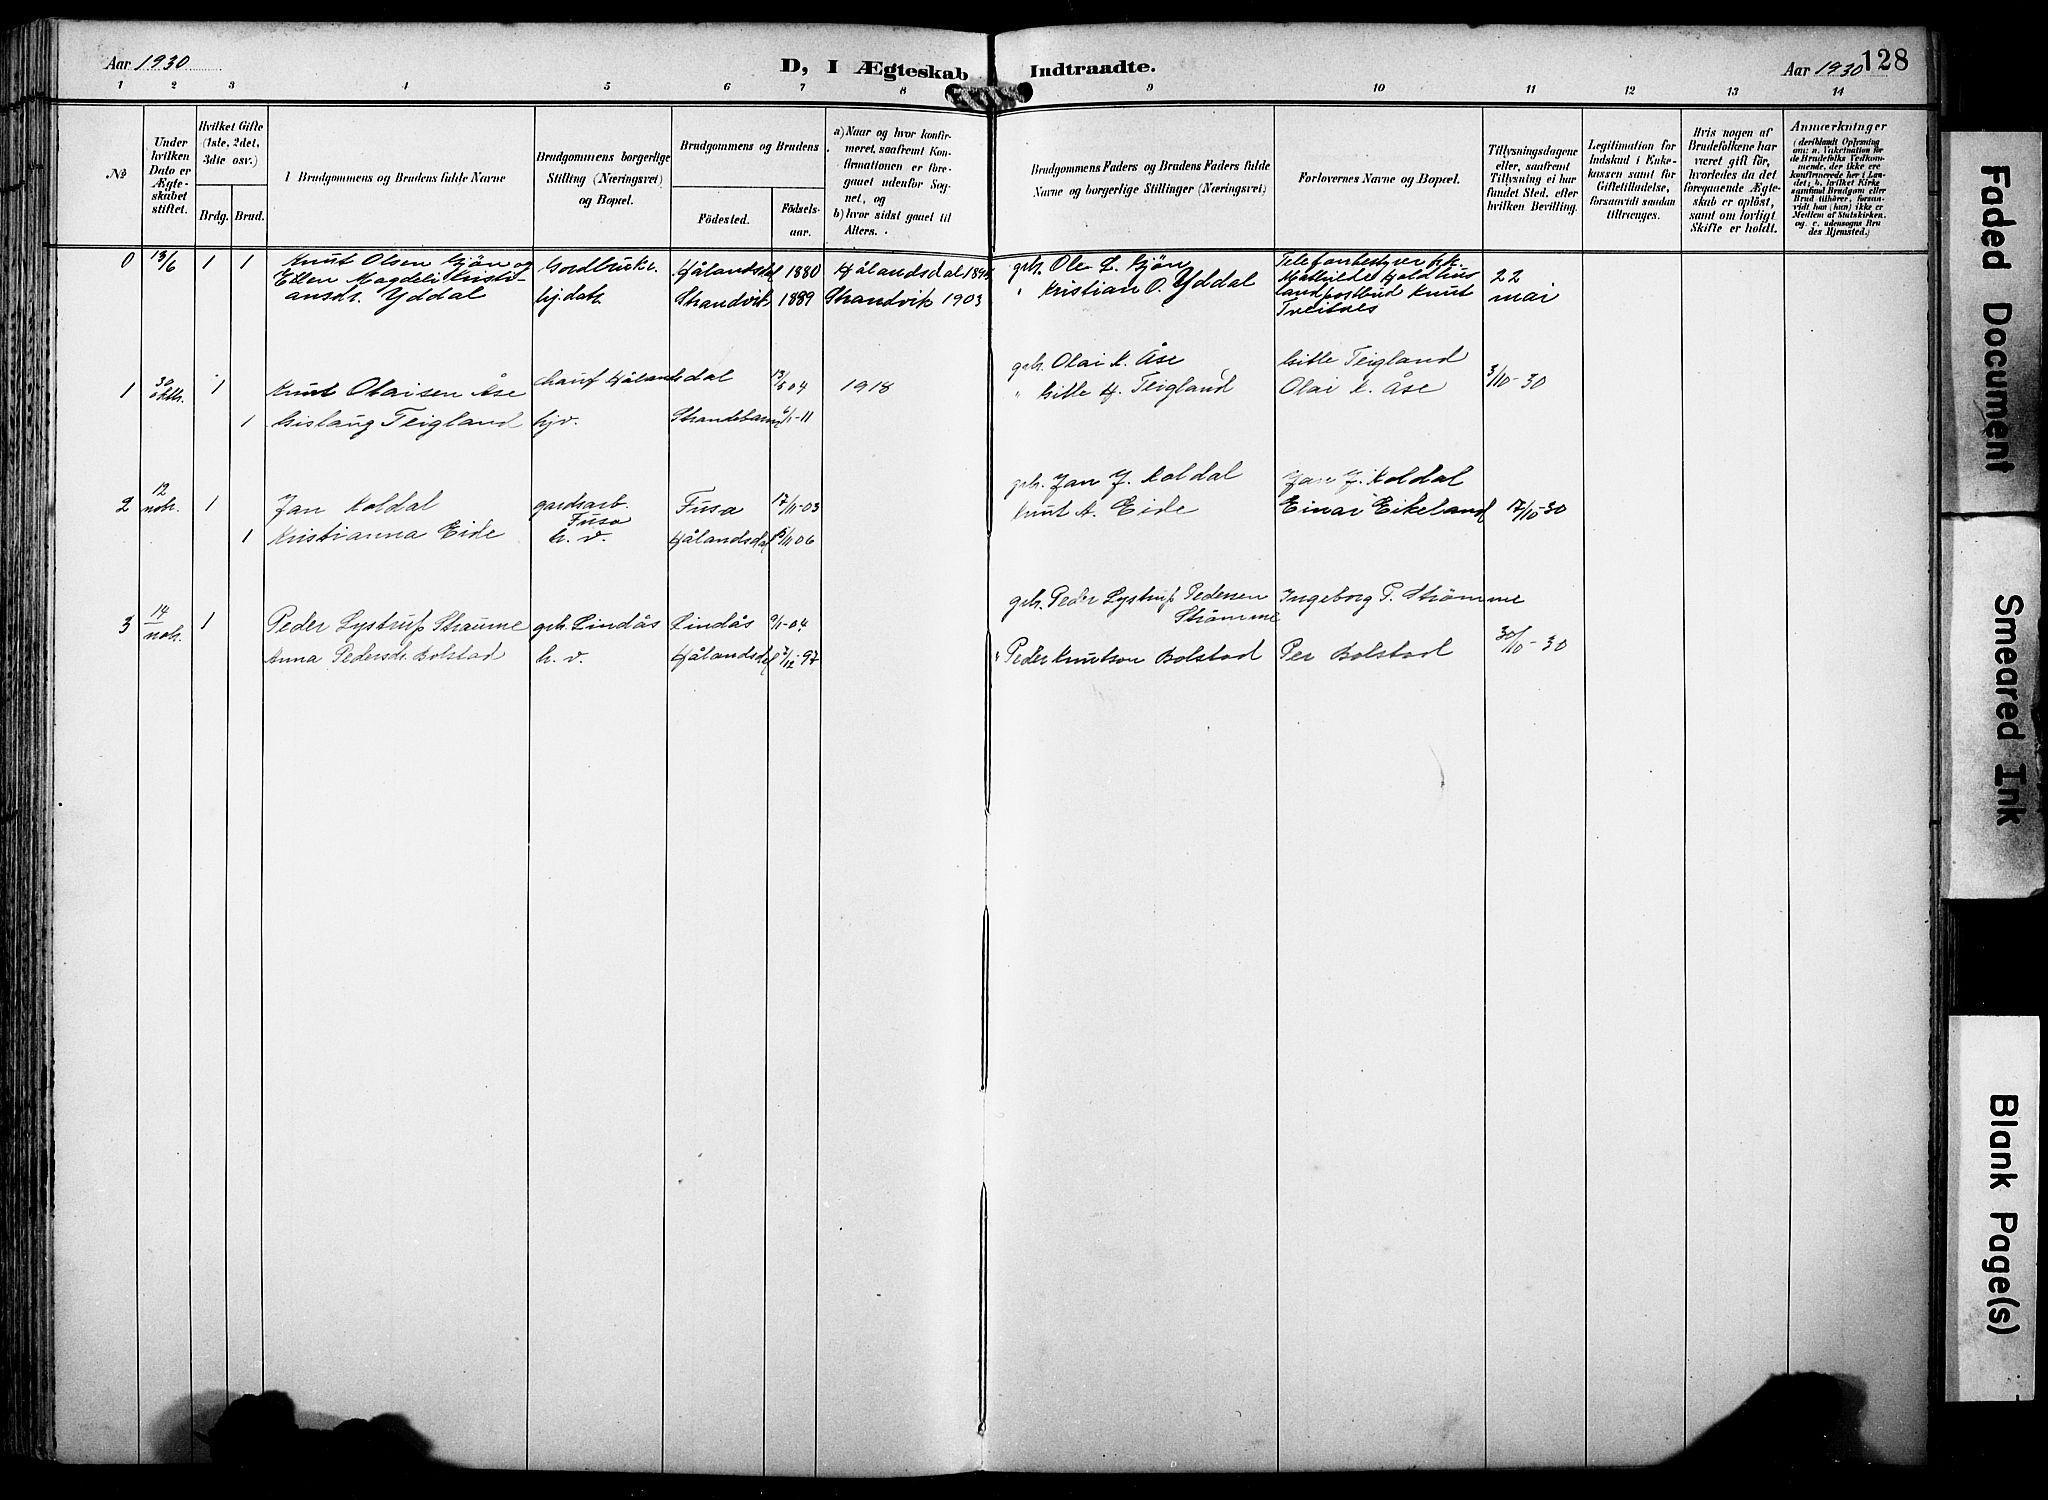 Aar 1930
D, I Ægteskab Indtraadte.
Aar 1930
128
1 2 3 4 5 6 7 8 9 10 11 12 13 14
№
Under hvilken Dato er Ægteskabet stiftet.
Hvilket Gifte (1ste, 2det, 3die osv.)
Brdg. Brud.
Brudgommens og Brudens fulde Navne
Brudgommens borgerlige Stilling (Næringsvei) og Bopæl.
Brudgommens og Brudens
Fødested.
Fødselsaar.
a) Naar og hvor konfirmeret, saafremt Konfirmationen er foregaaet udenfor Sognet, og
b) hvor sidst gaaet til Alters.
Brudgommens Faders og Brudens Faders fulde Navne og borgerlige Stillinger (Næringsvei)
Forlovernes Navne og Bopæl.
Tillysningsdagene eller, saafremt Tillysning ei har fundet Sted, efter hvilken Bevilling.
Legitimation for Indskud i Enkekassen samt for Giftetilladelse, forsaavidt saadan tiltrænges.
Hvis nogen af Brudefolkene har været gift før, hvorledes da det foregaaende Ægteskab er opløst, samt om lovligt Skifte er holdt.
Anmærkninger
(deriblandt Oplysning om: a. Vakcination for de Brudefolks Vedkommende, der ikke ere konfirmerede her i Landet; b. hvilket Kirkesamfund Brudgom eller Brud tilhører, forsaavidt han (hun) ikke er Medlem af Statskirken, og c. udensogns Brudes Hjemsted.
0 13/6 1 1 Knut Olsen Gjøn og Gardbrukr. Hålandsdal 1880 Hålandsdal gbr. Ole L. Gjøn
Ellen Magdeli Kristiansdr. Yddal hj. datr. Strandvik 1889 Strandvik 1903 " Kristian O. Yddal
Telefonbestyrer frk. Mathilde Holdhus landpostbud Knut 22 mai
1 30 oktbr. 1 Knut Olaisen Åse chauf Hålandsdal 13/6 04 1918 gbr. Olai K. Åse Gitle Teigland 3/10-30
1 Gislaug Teigland hjv. Strandebarm 6/1-11 " Gitle H. Teigland Olai K. Åse
2 12 nobr. 1 Jan Koldal gardsarb. Fusa Fusa 17/11-03 gbr. Jan J. Koldal Jan J. Koldal
1 Kristianna Eide h. v. Hålandsdal 06 Knut A. Eide Einar Eikeland 17/10-30
3 14 nobr. 1 Peder Lystrup Straume gbr. Lindås Lindås 9/1-04 gbr. Peder Lystrup Pedersen Strømme Ingeborg P. Strømme
Anna Pedersdr. Bolstad h. v. Hålandsdal 7/12-97 " Peder Knutson Bolstad Per Bolstad 30/10-30
Faded Document
Smeared Ink
Blank Page(s)